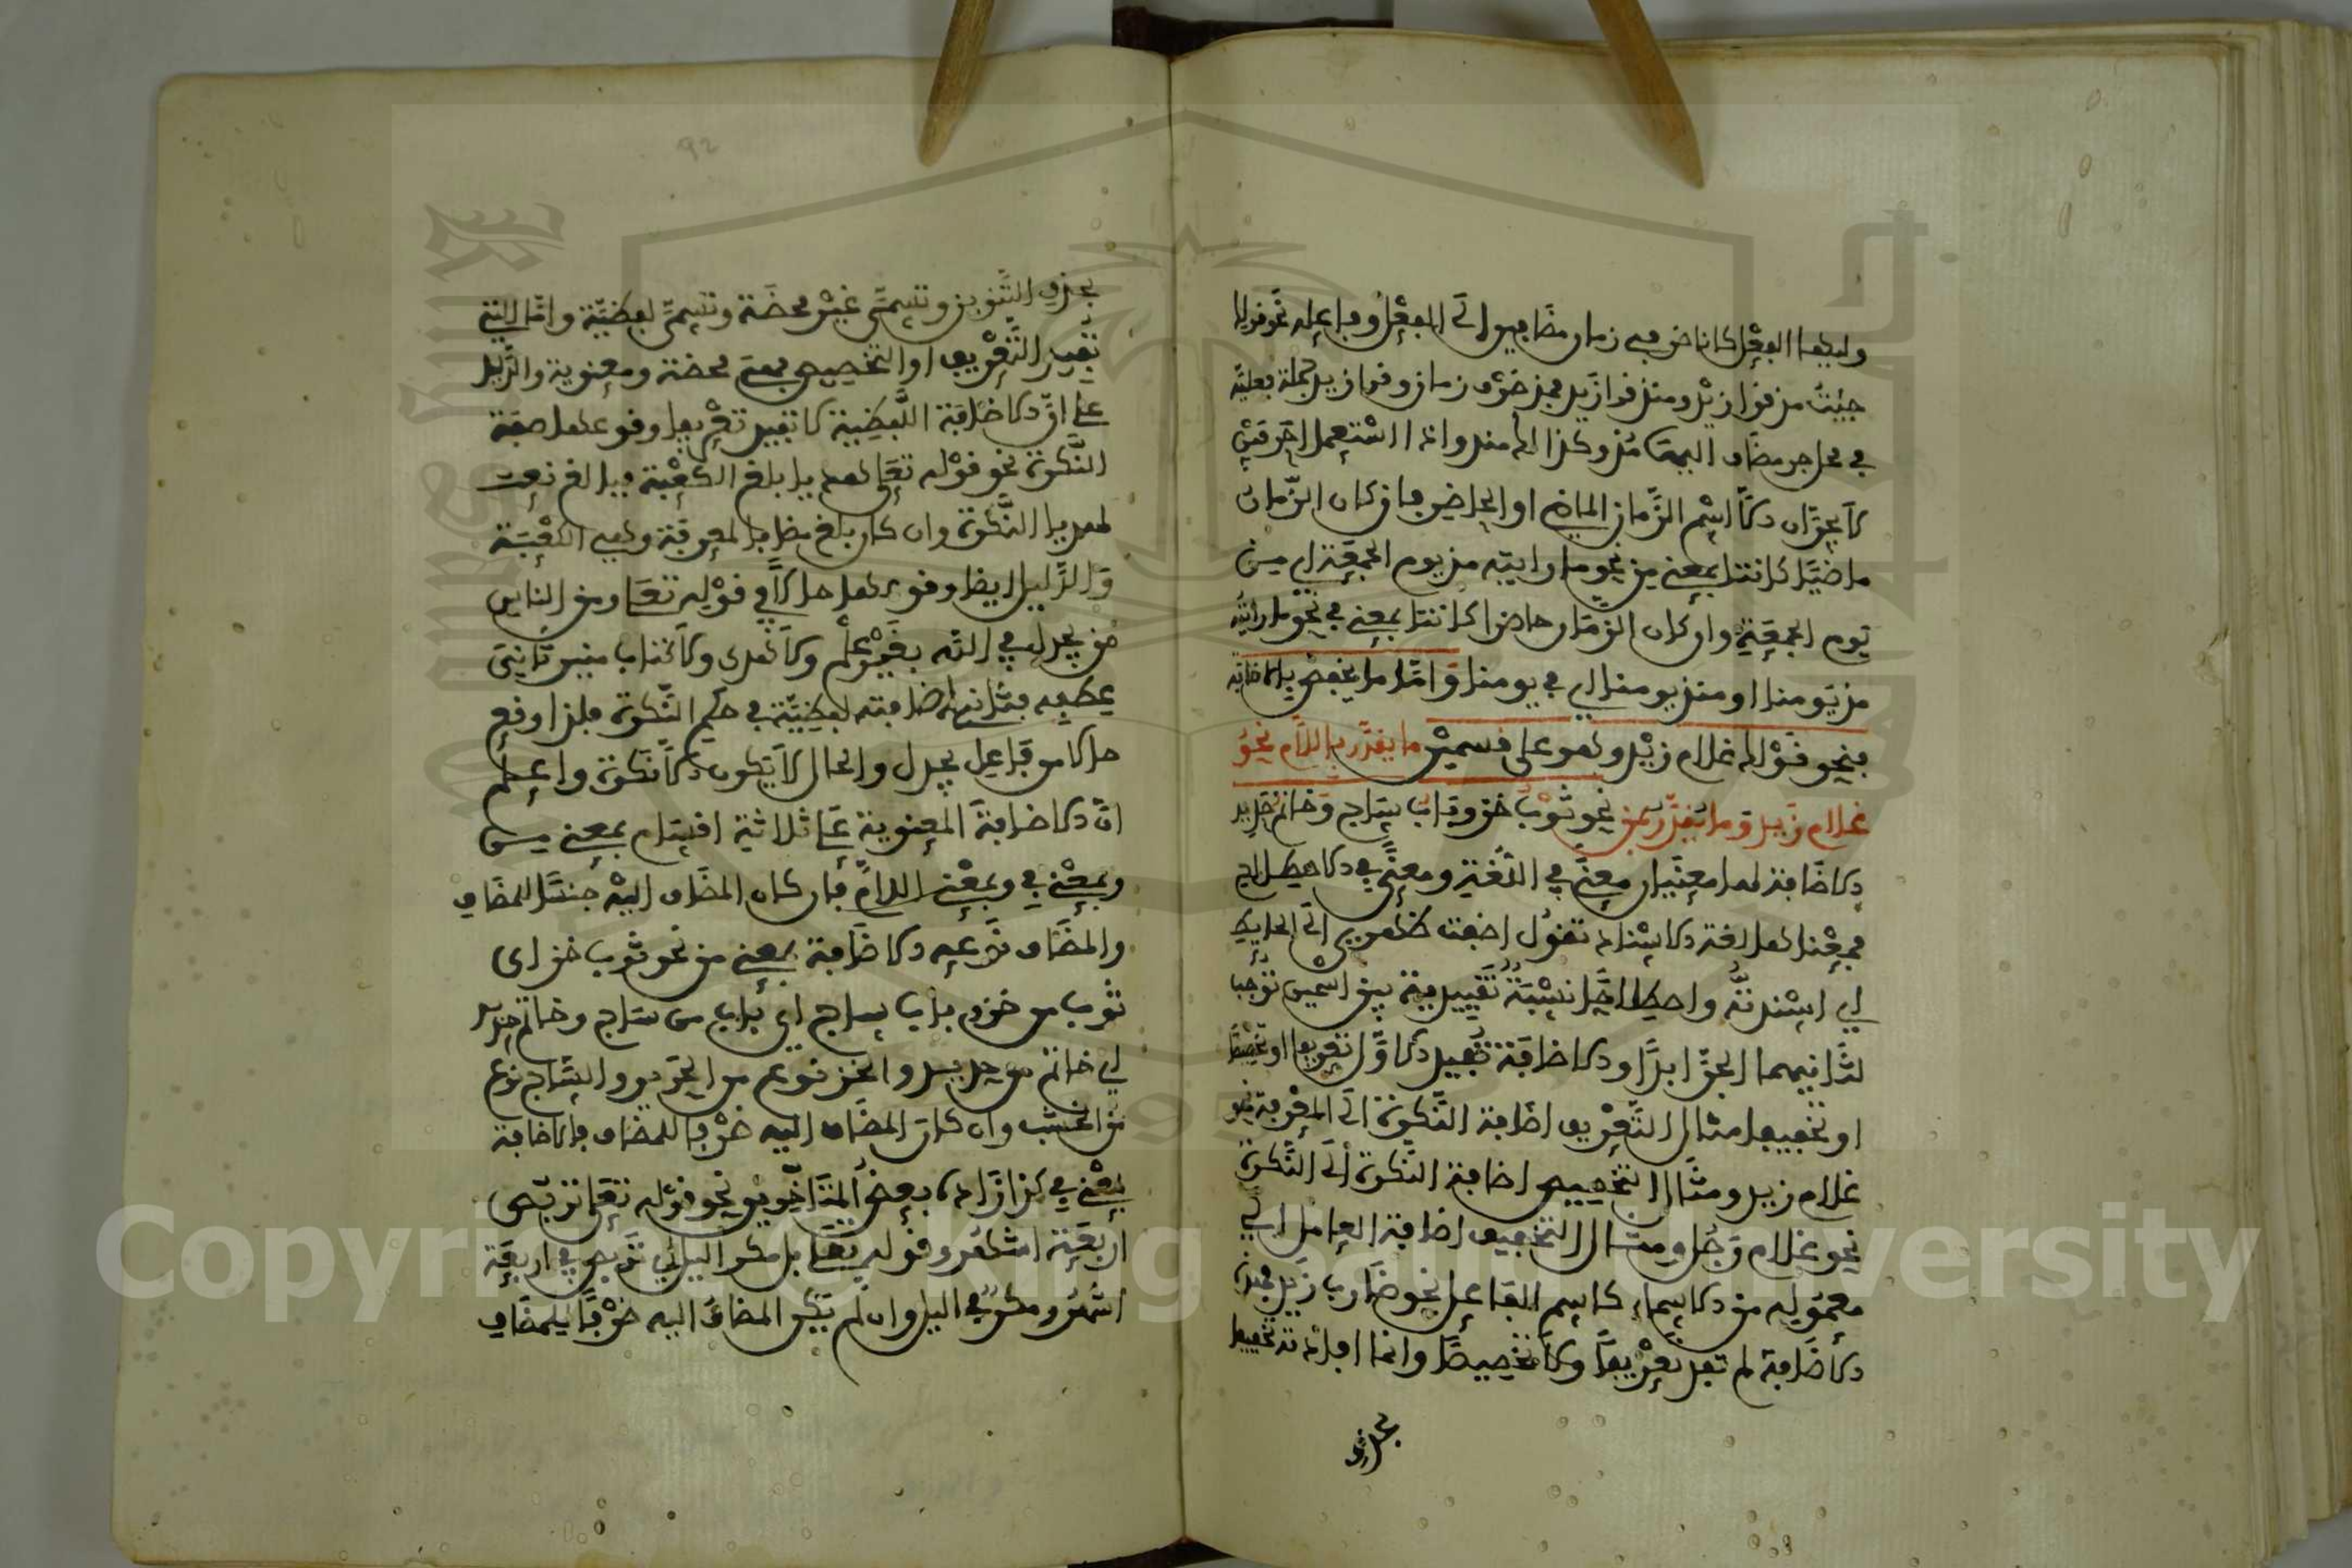 وليهما الفعل كانا ظرفي زمان مضافين إلى الفعل وفاعله نحو قولك
جئت مذ قام زيد ومنذ قام زيد فمذ ظرف زمان وقام زيد جملة فعلية
في محل جر مضاف إليها مذ وكذلك منذ وإذا استعمل حرفين
لا يجران إلا اسم الزمان الماضي أو الحاضر فإن كان الزمان
ماضيا كانتا بمعنى من نحو ما رأيته مذ يوم الجمعة أي من
يوم الجمعة وإن كان الزمان حاضرا كانتا بمعنى في نحو ما رأيته
مذ يومنا أو منذ يومنا أي في يومنا وأما ما يخفض بالإضافة
فنحو قولك غلام زيد وهو على قسمين ما يقدر باللام نحو
غلام زيد وما يقدر بمن نحو ثوب خز وباب ساج وخاتم حديد
الإضافة لها معنيان معنى في اللغة ومعنى في الاصطلاح
فمعناها لغة الإسناد تقول أضفت ظهري إلى الحائط
أي أسندته واصطلاحا نسبة تقييدية بين اسمين توجب
لثانيهما الجر أبدا والإضافة تفيد الأول تعريفا أو تخصيصا
أو تخفيفا مثال التعريف إضافة النكرة إلى المعرفة نحو
غلام زيد ومثال التخصيص إضافة النكرة إلى النكرة
نحو غلام رجل ومثال التخفيف إضافة العامل إلى
معموله من الأسماء كاسم الفاعل نحو ضارب زيد فهذه
الإضافة لم تفد تعريفا ولا تخصيصا وإنما أفادته تخفيفا
بحذف
بحذف التنوين وتسمى غير محضة وتسمى لفظية وأما التي
تفيد التعريف أو التخصيص فهي محضة ومعنوية والدليل
على أن الإضافة اللفظية لا تفيد تعريفا وقوعها صفة
النكرة نحو قوله تعالى هديا بالغ الكعبة فبالغ نعت
لهديا النكرة وإن كان بالغ مضافا لمعرفة وهي الكعبة
والدليل أيضا وقوعها حالا في قوله تعالى ومن الناس
من يجادل في الله بغير علم ولا هدى ولا كتاب منير ثاني
عطفه فثاني إضافته لفظية في حكم النكرة فلذا وقع
حالا من فاعل يجادل والحال لا يكون إلا نكرة واعلم
أن الإضافة المعنوية على ثلاثة أقسام بمعنى من
وبمعنى في وبمعنى اللام فإن كان المضاف إليه جنسا للمضاف
والمضاف نوعه الإضافة بمعنى من نحو ثوب خز أي
ثوب من خز وباب ساج أي باب من ساج وخاتم حديد
أي خاتم من حديد والخز نوع من الحرير والساج نوع
من الخشب وإن كان المضاف إليه ظرفا للمضاف فالإضافة
بمعنى في كذا زاده بعض المتأخرين نحو قوله تعالى تربص
أربعة أشهر وقوله تعالى بل مكر الليل أي تربص في أربعة
أشهر ومكر في الليل وإن لم يكن المضاف إليه ظرفا للمضاف
Copyright © King Saud University